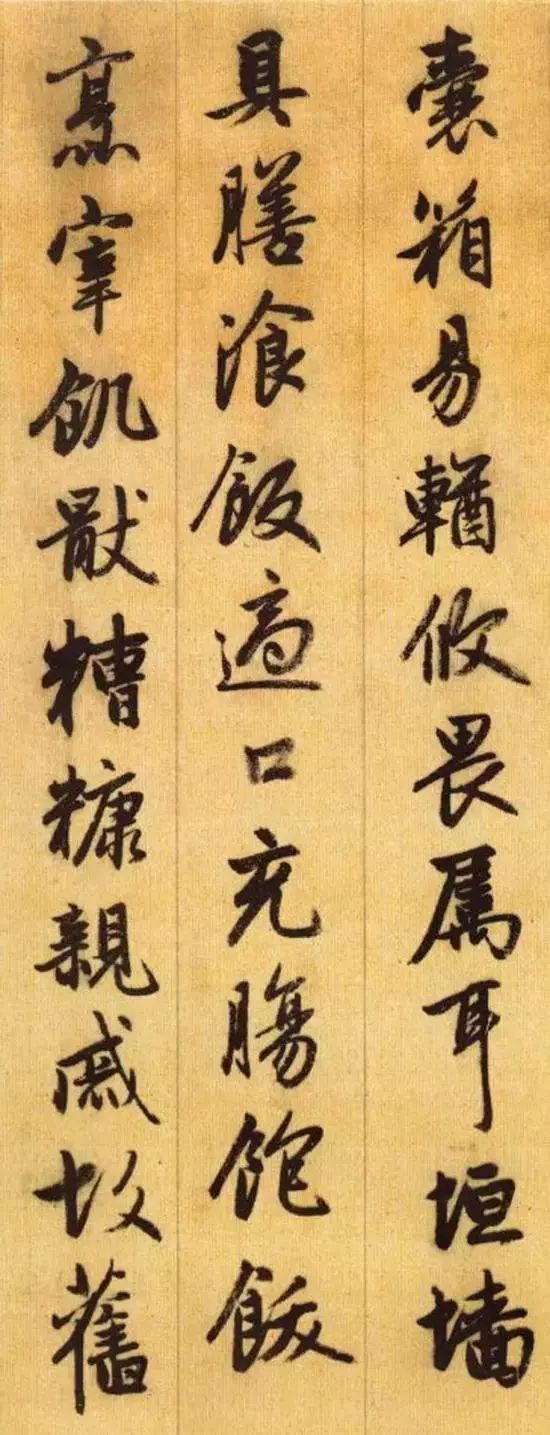 囊箱易輶攸畏属耳垣墻
具膳飡飯適口充腸飽飫
烹宰飢猒糟糠親戚故舊